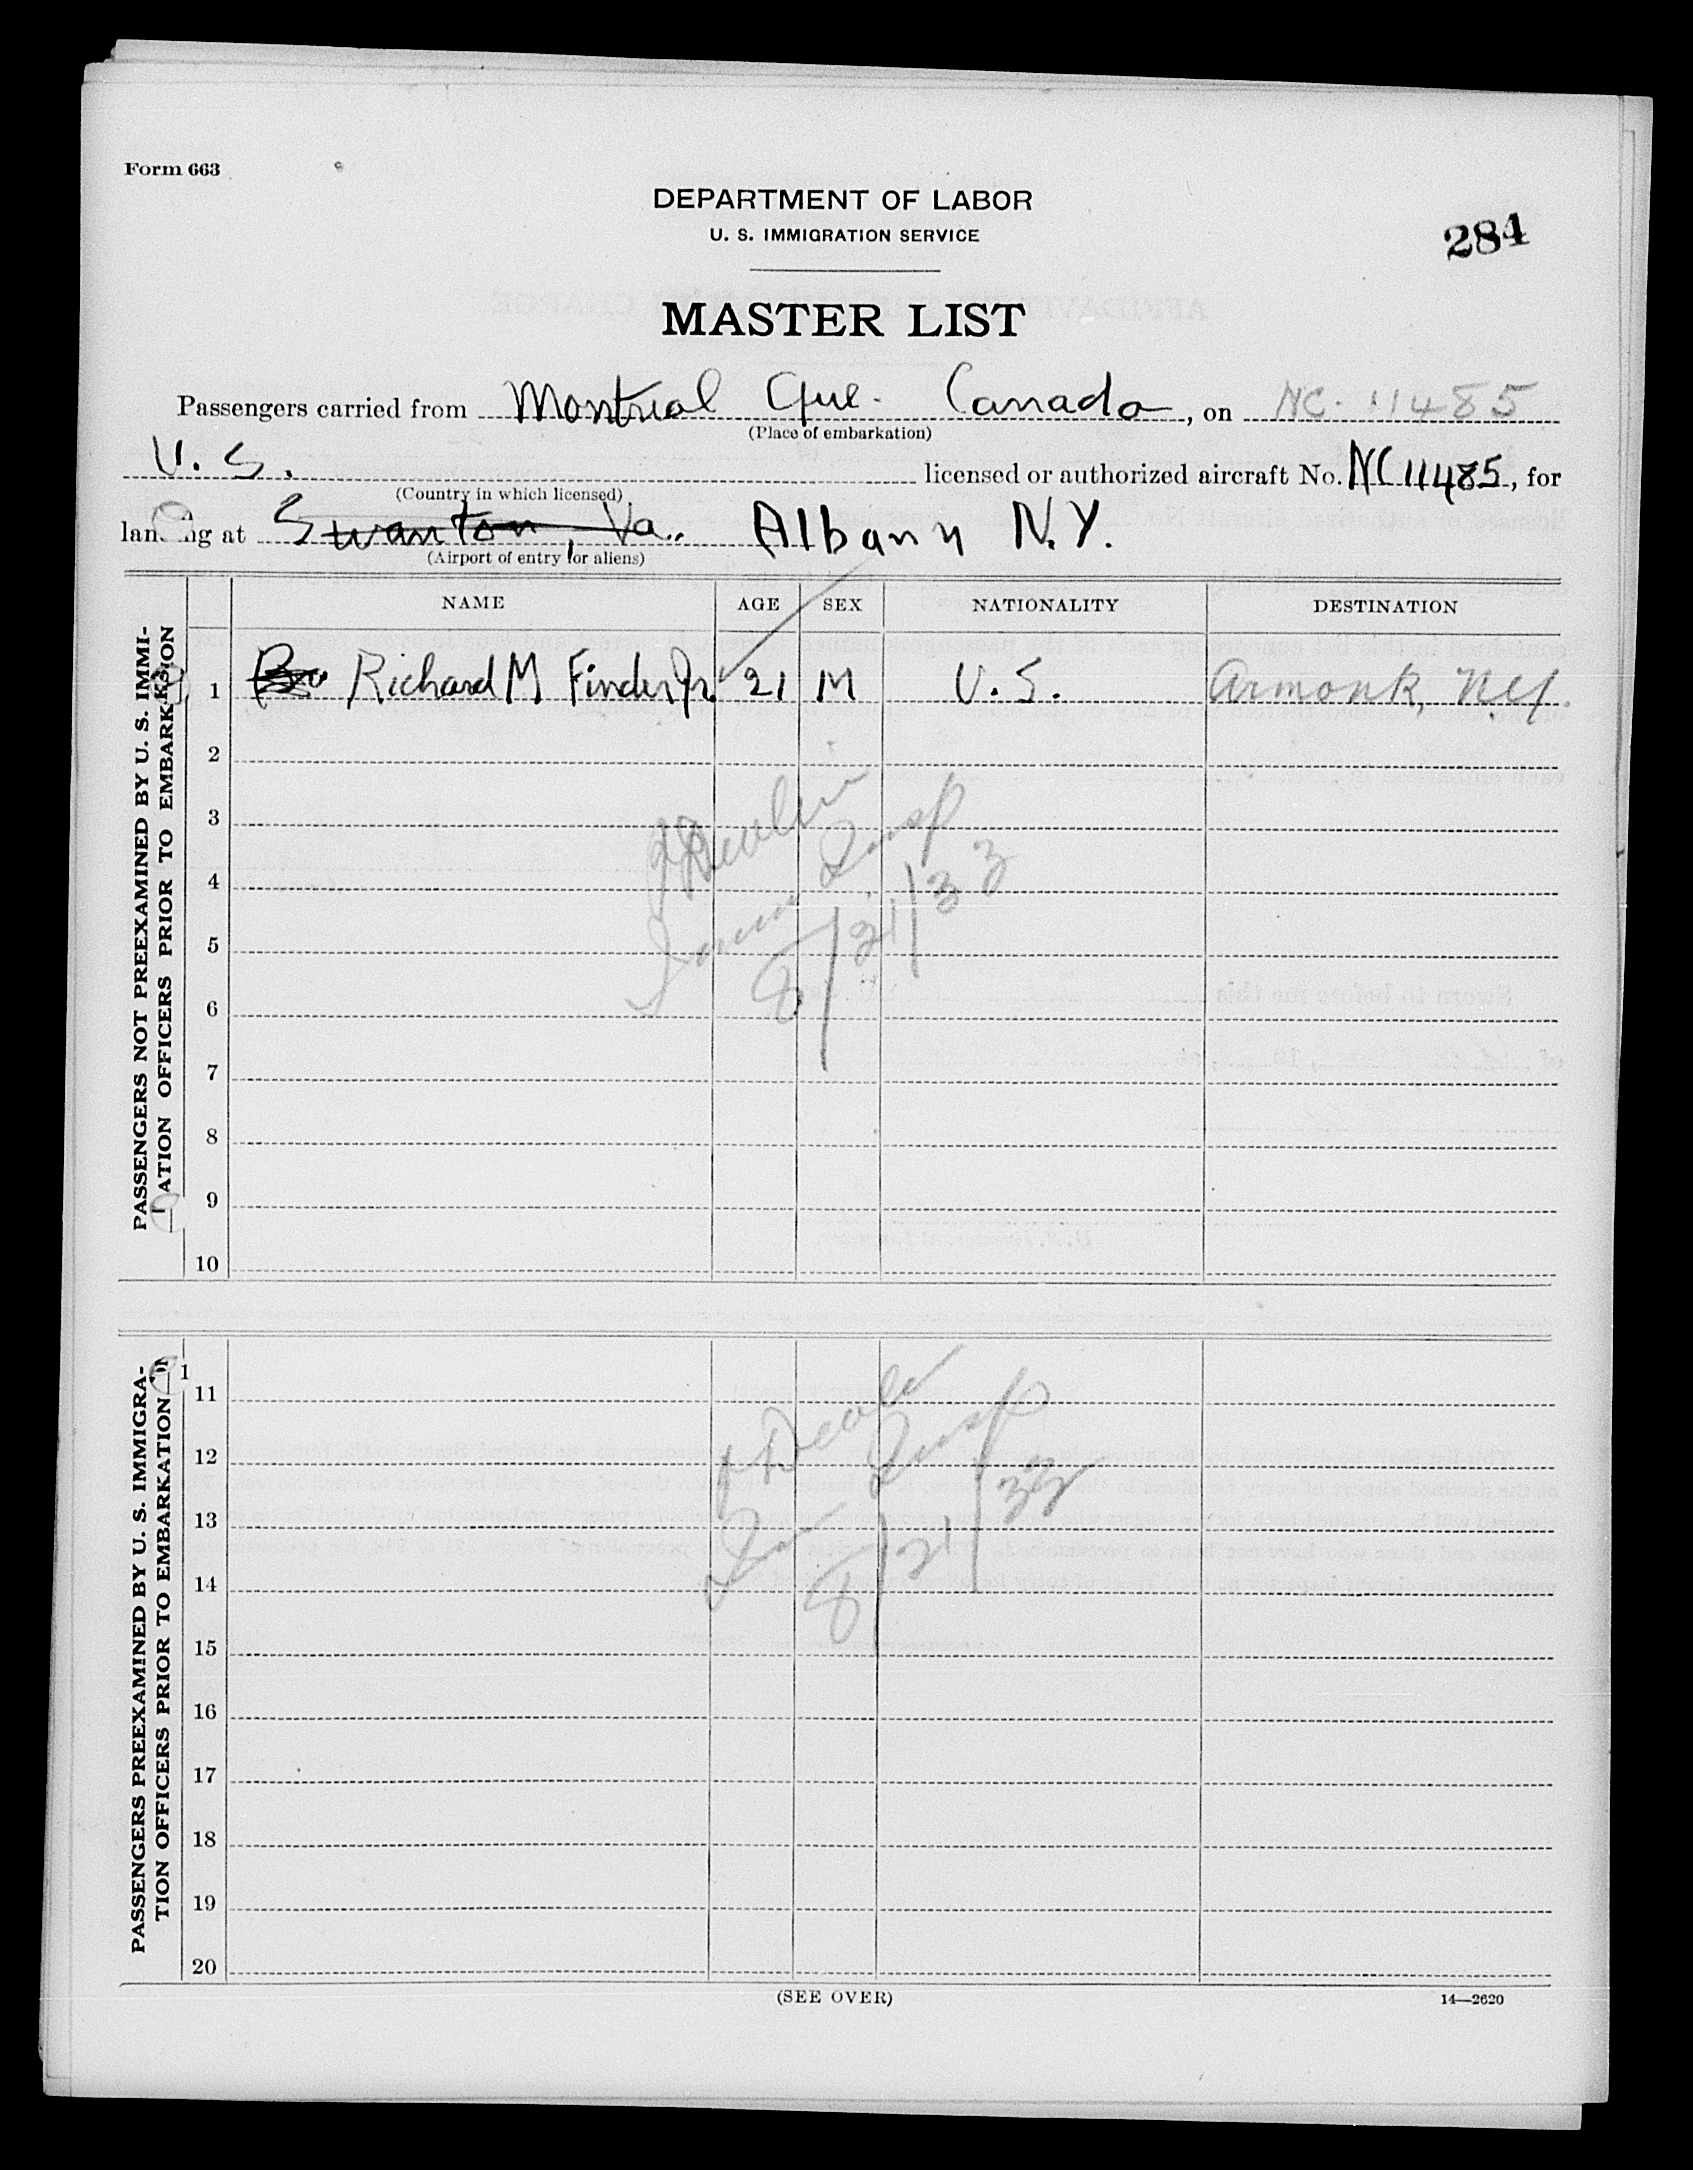 Form 663
DEPARTMENT OF LABOR
U. S. IMMIGRATION SERVICE
284
MASTER LIST
Passengers carried from Montreal Que. Canada, on NC-11485
(Place of embarkation)
U. S. licensed or authorized aircraft No. NC11485, for
(Country in which licensed)
landing at Swanton, Va. Albany N.Y.
(Airport of entry for aliens)
NAME AGE SEX NATIONALITY DESTINATION
PASSENGERS NOT PREEXAMINED BY U. S. IMMI-
GRATION OFFICERS PRIOR TO EMBARKATION
1 Richard M Finder Jr. 21 M U. S. Armonk, N.Y.
2
3
4
5
6
7
8
9
10
Imm Insp
8/21/33
PASSENGERS PREEXAMINED BY U. S. IMMIGRA-
TION OFFICERS PRIOR TO EMBARKATION
11
12
13
14
15
16
17
18
19
20
Im Insp
8/21/33
(SEE OVER)
14—2620